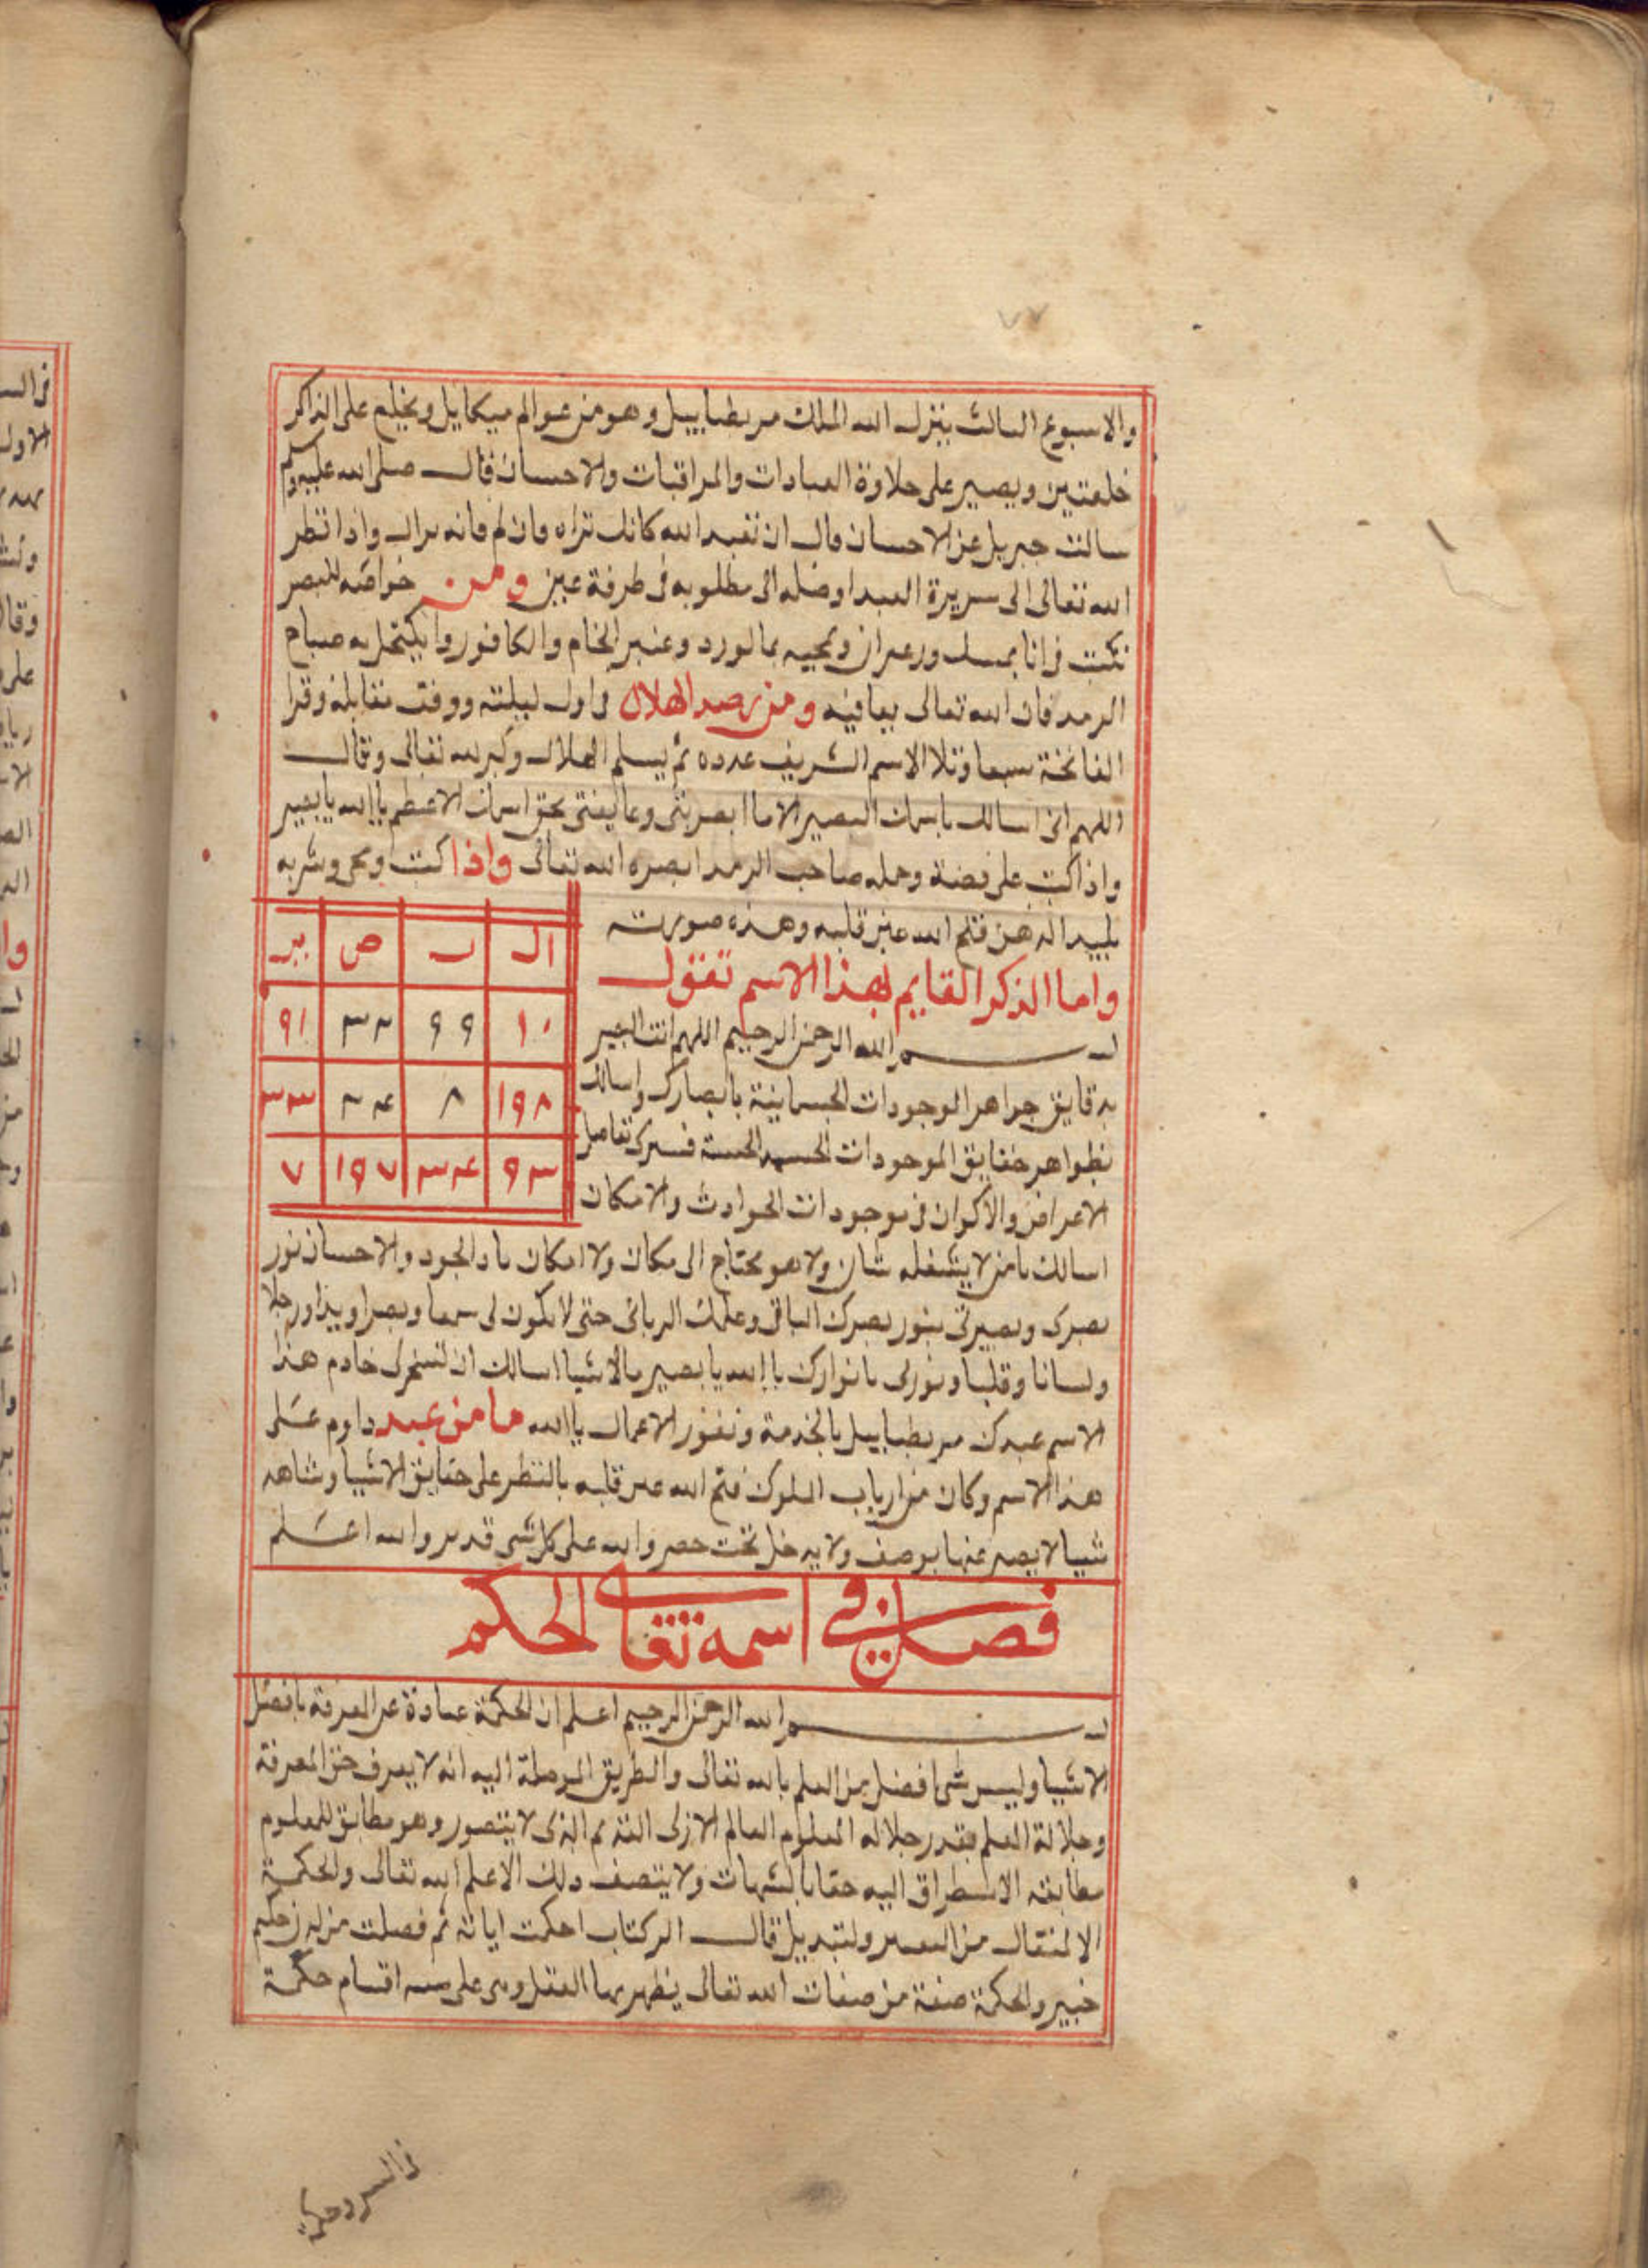 والاسبوع الثالث ينزل الله الملك مريطيابييل وهو من عوالم ميكاييل ويخلع على الذاكر
خلعتين ويصير على حلاوة العبادات والمراقبات والاحسان قال صلى الله عليه وسلم
سالت جبريل عن الاحسان قال ان تعبد الله كانك تراه فان لم فانه يراك واذا نظر
الله تعالى الى سريرة العبد اوصله الى مطلوبه فى طرفة عين ومن خواصه للبصر
تكتب فى انا بمسك وزعفران وتمحيه بمالورد وعنبر الخام والكافور وا يكتحل به صباح
الرمد فان الله تعالى يعافيه ومن رصد الهلال فى اول ليلته ووقف مقابله وقرا
الفاتحة سبعا وتلا الاسم الشريف عدده ثم يسلم الهلال وكبر لله تعالى وقال
اللهم انى اسالك باسمك البصير الا ما ابصرتنى وعافيتنى بحق اسمك الاعظم ياالله يابصير
واذا كتب على فضة وحمله صاحب الرمد ابصره الله تعالى واذا كتب ومحى وشربه
بليد الذهن فتح الله عين قلبه وهذه صورته
واما الذكر القايم بهذا الاسم تقول
بسم الله الرحمن الرحيم اللهم انت البصير
بدقايق جواهر الوجودات الجسمانية بابصارك واسالك
بظواهر حقايق الموجودات
الاعراض والاكوان فى موجودات الحوادث والامكان
ال ب ص ير
١٠ ٩٩ ٣٢ ٩١
١٩٨ ٨ ٢٤ ٣٣
٩٣ ٣٤ ١٩٧ ٧
اسالك يامن لا يشغله شان ولا هو يحتاج الى مكان ولا امكان ياذا الجود والاحسان نور
بصرى وبصيرتى بنور بصرك الباقى وعلمك الربانى حتى لا يكون لى سمعا وبصرا ويدا ورجلا
ولسانا وقلبا ونورنى بانوارك ياالله يابصير بالاشيا اسالك ان تسخر لى خادم هذا
الاسم عبدك مريطيابييل بالخدمة ونفوز الاعمال ياالله مامن عبد داوم على
هذا الاسم وكان من ارباب السلوك فتح الله عين قلبه بالنظر على حقايق الاشيا وشاهد
شيا لا يصبر عنها بوصف ولا يدخل تحت حصر والله على كل شى قدير والله اعلم
فصل فى اسمه تعالى الحكم
بسم الله الرحمن الرحيم اعلم ان الحكمة عبارة عن المعرفة بافضل
الاشيا وليس شى افضل من العلم بالله تعالى والطريق الموصلة اليه انه لا يعرف حق المعرفة
وجلالة العلم بقدر جلاله المعلوم العالم الازلى القديم الذى لا يتصور وهو مطابق للمعلوم
مطابقه الاستطراق اليه حقا بالشبهات ولا يتصف ذلك الاعلم الله تعالى والحكمة
الانتقال من ولتبديل قال الر كتاب احكمت اياته ثم فصلت من لدن حكيم
خبير والحكمة صفة من صفات الله تعالى يظهر بها العقل وهى على سته اقسام حكمة